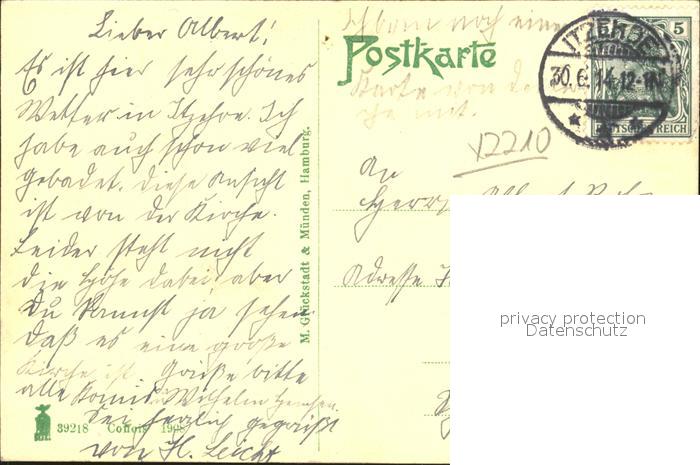 Lieber Albert!
Es ist hier sehr schönes
Wetter in Itzehoe. Ich
habe auch schon viel
gebadet. Diese Ansicht
ist von der Kirche.
Leider steht nicht
die Höhe dabei aber
Du kannst ja sehen
daß es eine große
Kirche ist. Grüße bitte
alle
Wilhelm
Sei herzlich gegrüßt
von H.
39218
M. Glückstadt & Münden, Hamburg.
Ich noch eine
Postkarte
Karte von
mit.
ITZEHOE
30.6.14.12-1N
5
DEUTSCHES REICH
x2210
An
Herrn
Adresse
privacy protection
Datenschutz